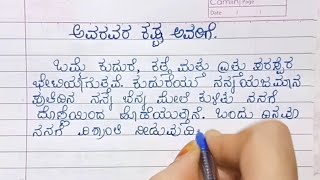 ಅವರವರ ಕಷ್ಟ ಅವರಿಗೆ.
ಒಮ್ಮೆ ಕುದುರೆ, ಕತ್ತೆ ಮತ್ತು ಎತ್ತು ಪರಸ್ಪರ
ಭೇಟಿಯಾಗುತ್ತವೆ. ಕುದುರೆಯು ನನ್ನ ಯಜಮಾನ
ನನ್ನ ಬೆನ್ನ ಮೇಲೆ ಕುಳಿತು ನನಗೆ
ದೊಣ್ಣೆಯಿಂದ ಹೊಡೆಯುತ್ತಾನೆ. ಒಂದು ದಿನವೂ
ನನಗೆ ವಿಶ್ರಾಂತಿ ನೀಡುವುದಿ